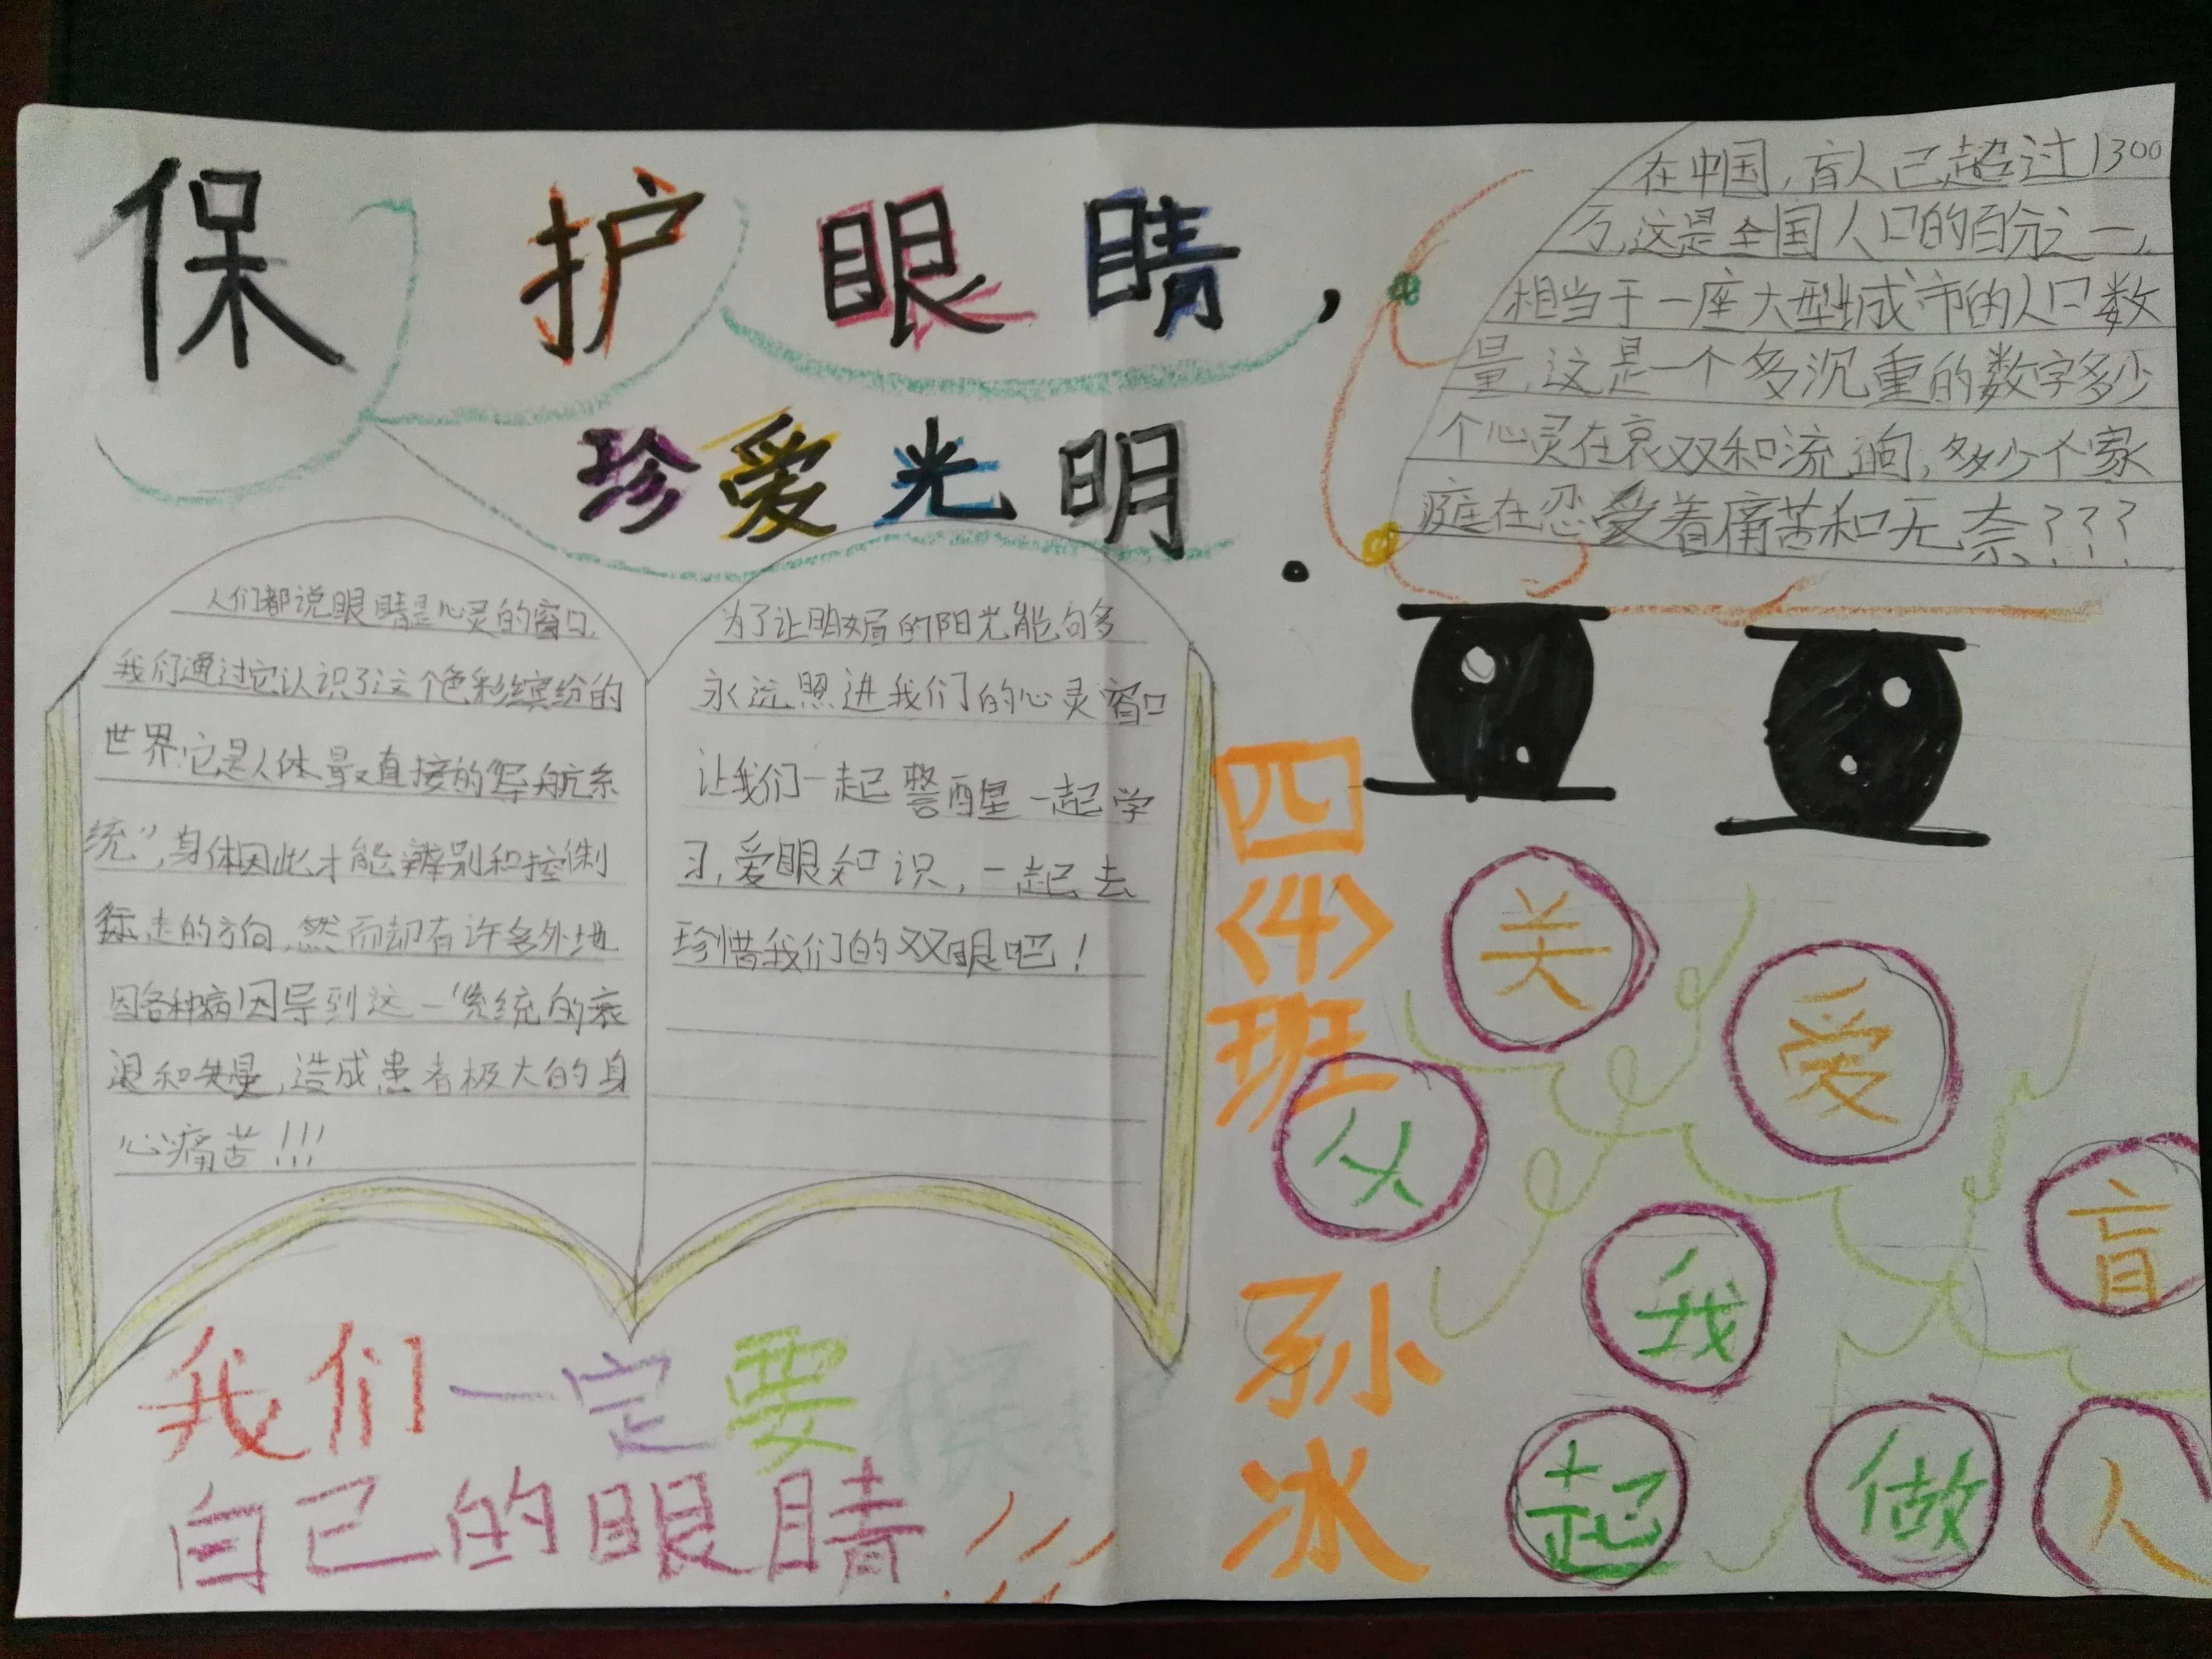 保护眼睛，
珍爱光明.
在中国，盲人已超过1300
万，这是全国人口的百分之一，
相当于一座大型城市的人口数
量，这是一个多沉重的数字多少
个心灵在哀双和流响，多少个家
庭在忍受着痛苦和无奈？？？
人们都说眼睛是心灵的窗口，
我们通过它认识了这个色彩缤纷的
世界，它是人体最直接的“导航系
统”，身体因此才能辨别和控制
行走的方向，然而却有许多外地
因各种病因导到这一“系统的衰
退和失灵，造成患者极大的身
心痛苦！！！
为了让明媚的阳光能句多
永远照进我们的心灵窗口
让我们一起警醒一起学
习，爱眼知识，一起去
珍惜我们的双眼吧！
四〈4〉班
孙冰
关爱盲人
从我做起
我们一定要保护
自己的眼睛！！！